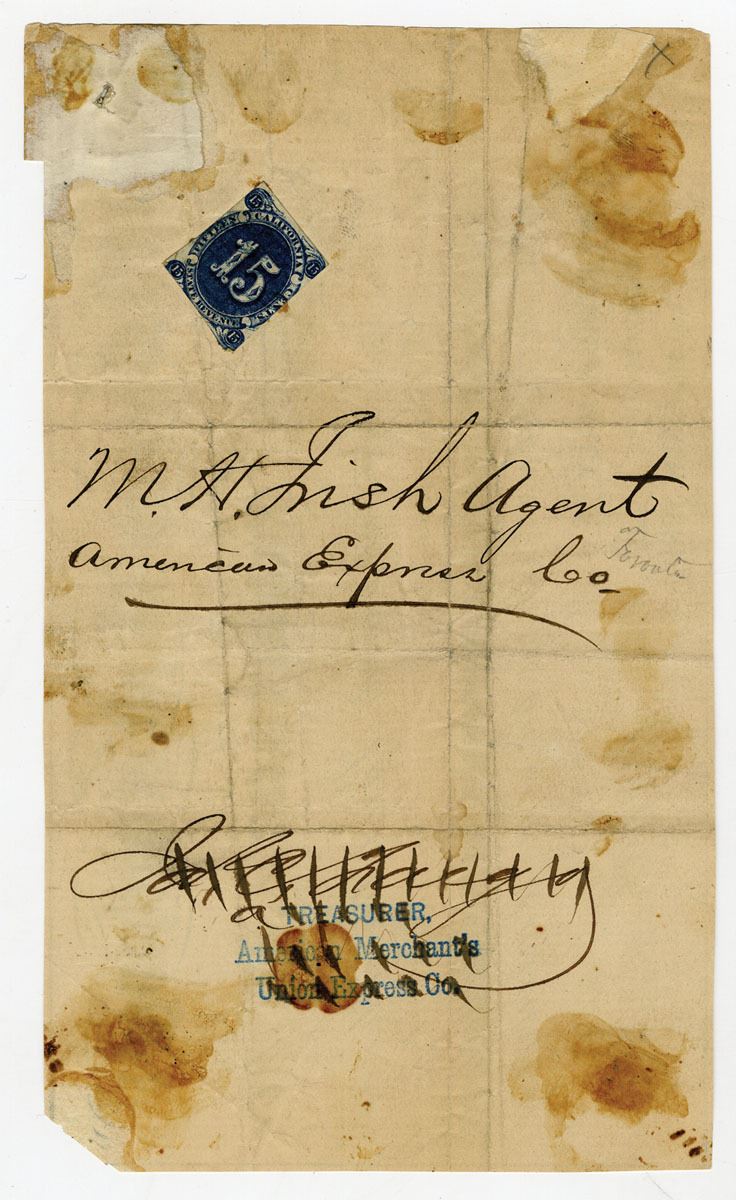 X
15 FIFTEEN CALIFORNIA 15
15
STATE REVENUE CENTS.
15 15
M. H. Irish Agent
American Express Co
Toronto
TREASURER,
American Merchant's
Union Express Co.